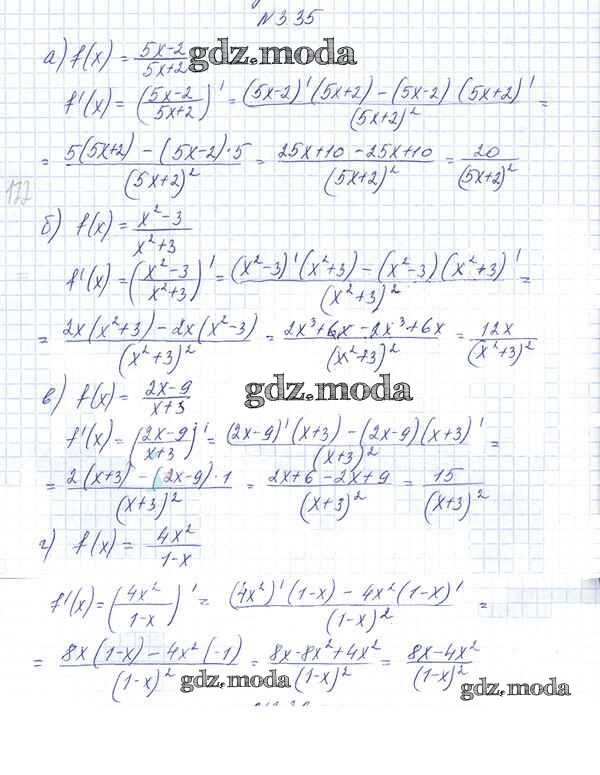 N 335
а) f(x) = (5x-2)/(5x+2)
gdz.moda
f'(x) = ((5x-2)/(5x+2))' = ((5x-2)'(5x+2) - (5x-2)(5x+2)')/(5x+2)² =
= (5(5x+2) - (5x-2)·5)/(5x+2)² = (25x+10-25x+10)/(5x+2)² = 20/(5x+2)²
172
б) f(x) = (x²-3)/(x²+3)
f'(x) = ((x²-3)/(x²+3))' = ((x²-3)'(x²+3) - (x²-3)(x²+3)')/(x²+3)² =
= (2x(x²+3) - 2x(x²-3))/(x²+3)² = (2x³+6x-2x³+6x)/(x²+3)² = 12x/(x²+3)²
в) f(x) = (2x-9)/(x+3)
gdz.moda
f'(x) = ((2x-9)/(x+3))' = ((2x-9)'(x+3) - (2x-9)(x+3)')/(x+3)² =
= (2(x+3) - (2x-9)·1)/(x+3)² = (2x+6-2x+9)/(x+3)² = 15/(x+3)²
г) f(x) = 4x²/(1-x)
f'(x) = (4x²/(1-x))' = ((4x²)'(1-x) - 4x²(1-x)')/(1-x)² =
= (8x(1-x) - 4x²(-1))/(1-x)² = (8x-8x²+4x²)/(1-x)² = (8x-4x²)/(1-x)²
gdz.moda
gdz.moda